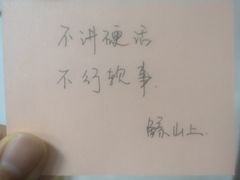 不讲硬话
不行软事.
缘山上.